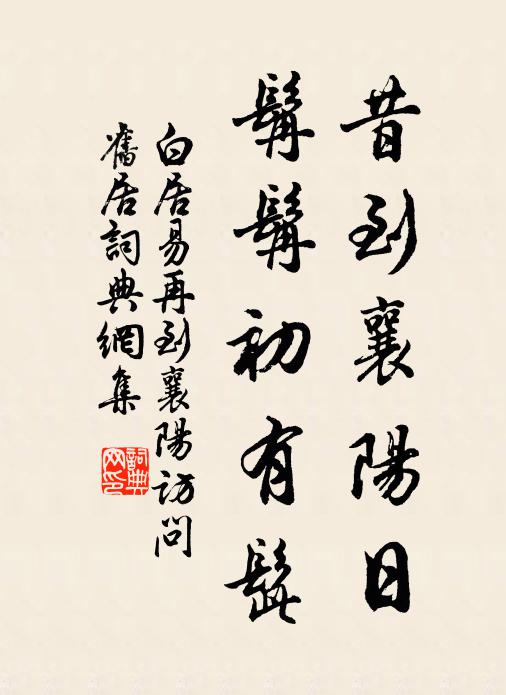 昔到襄陽日
髯髯初有髭
白居易再到襄陽訪問
舊居詞典網集
詞典
网印